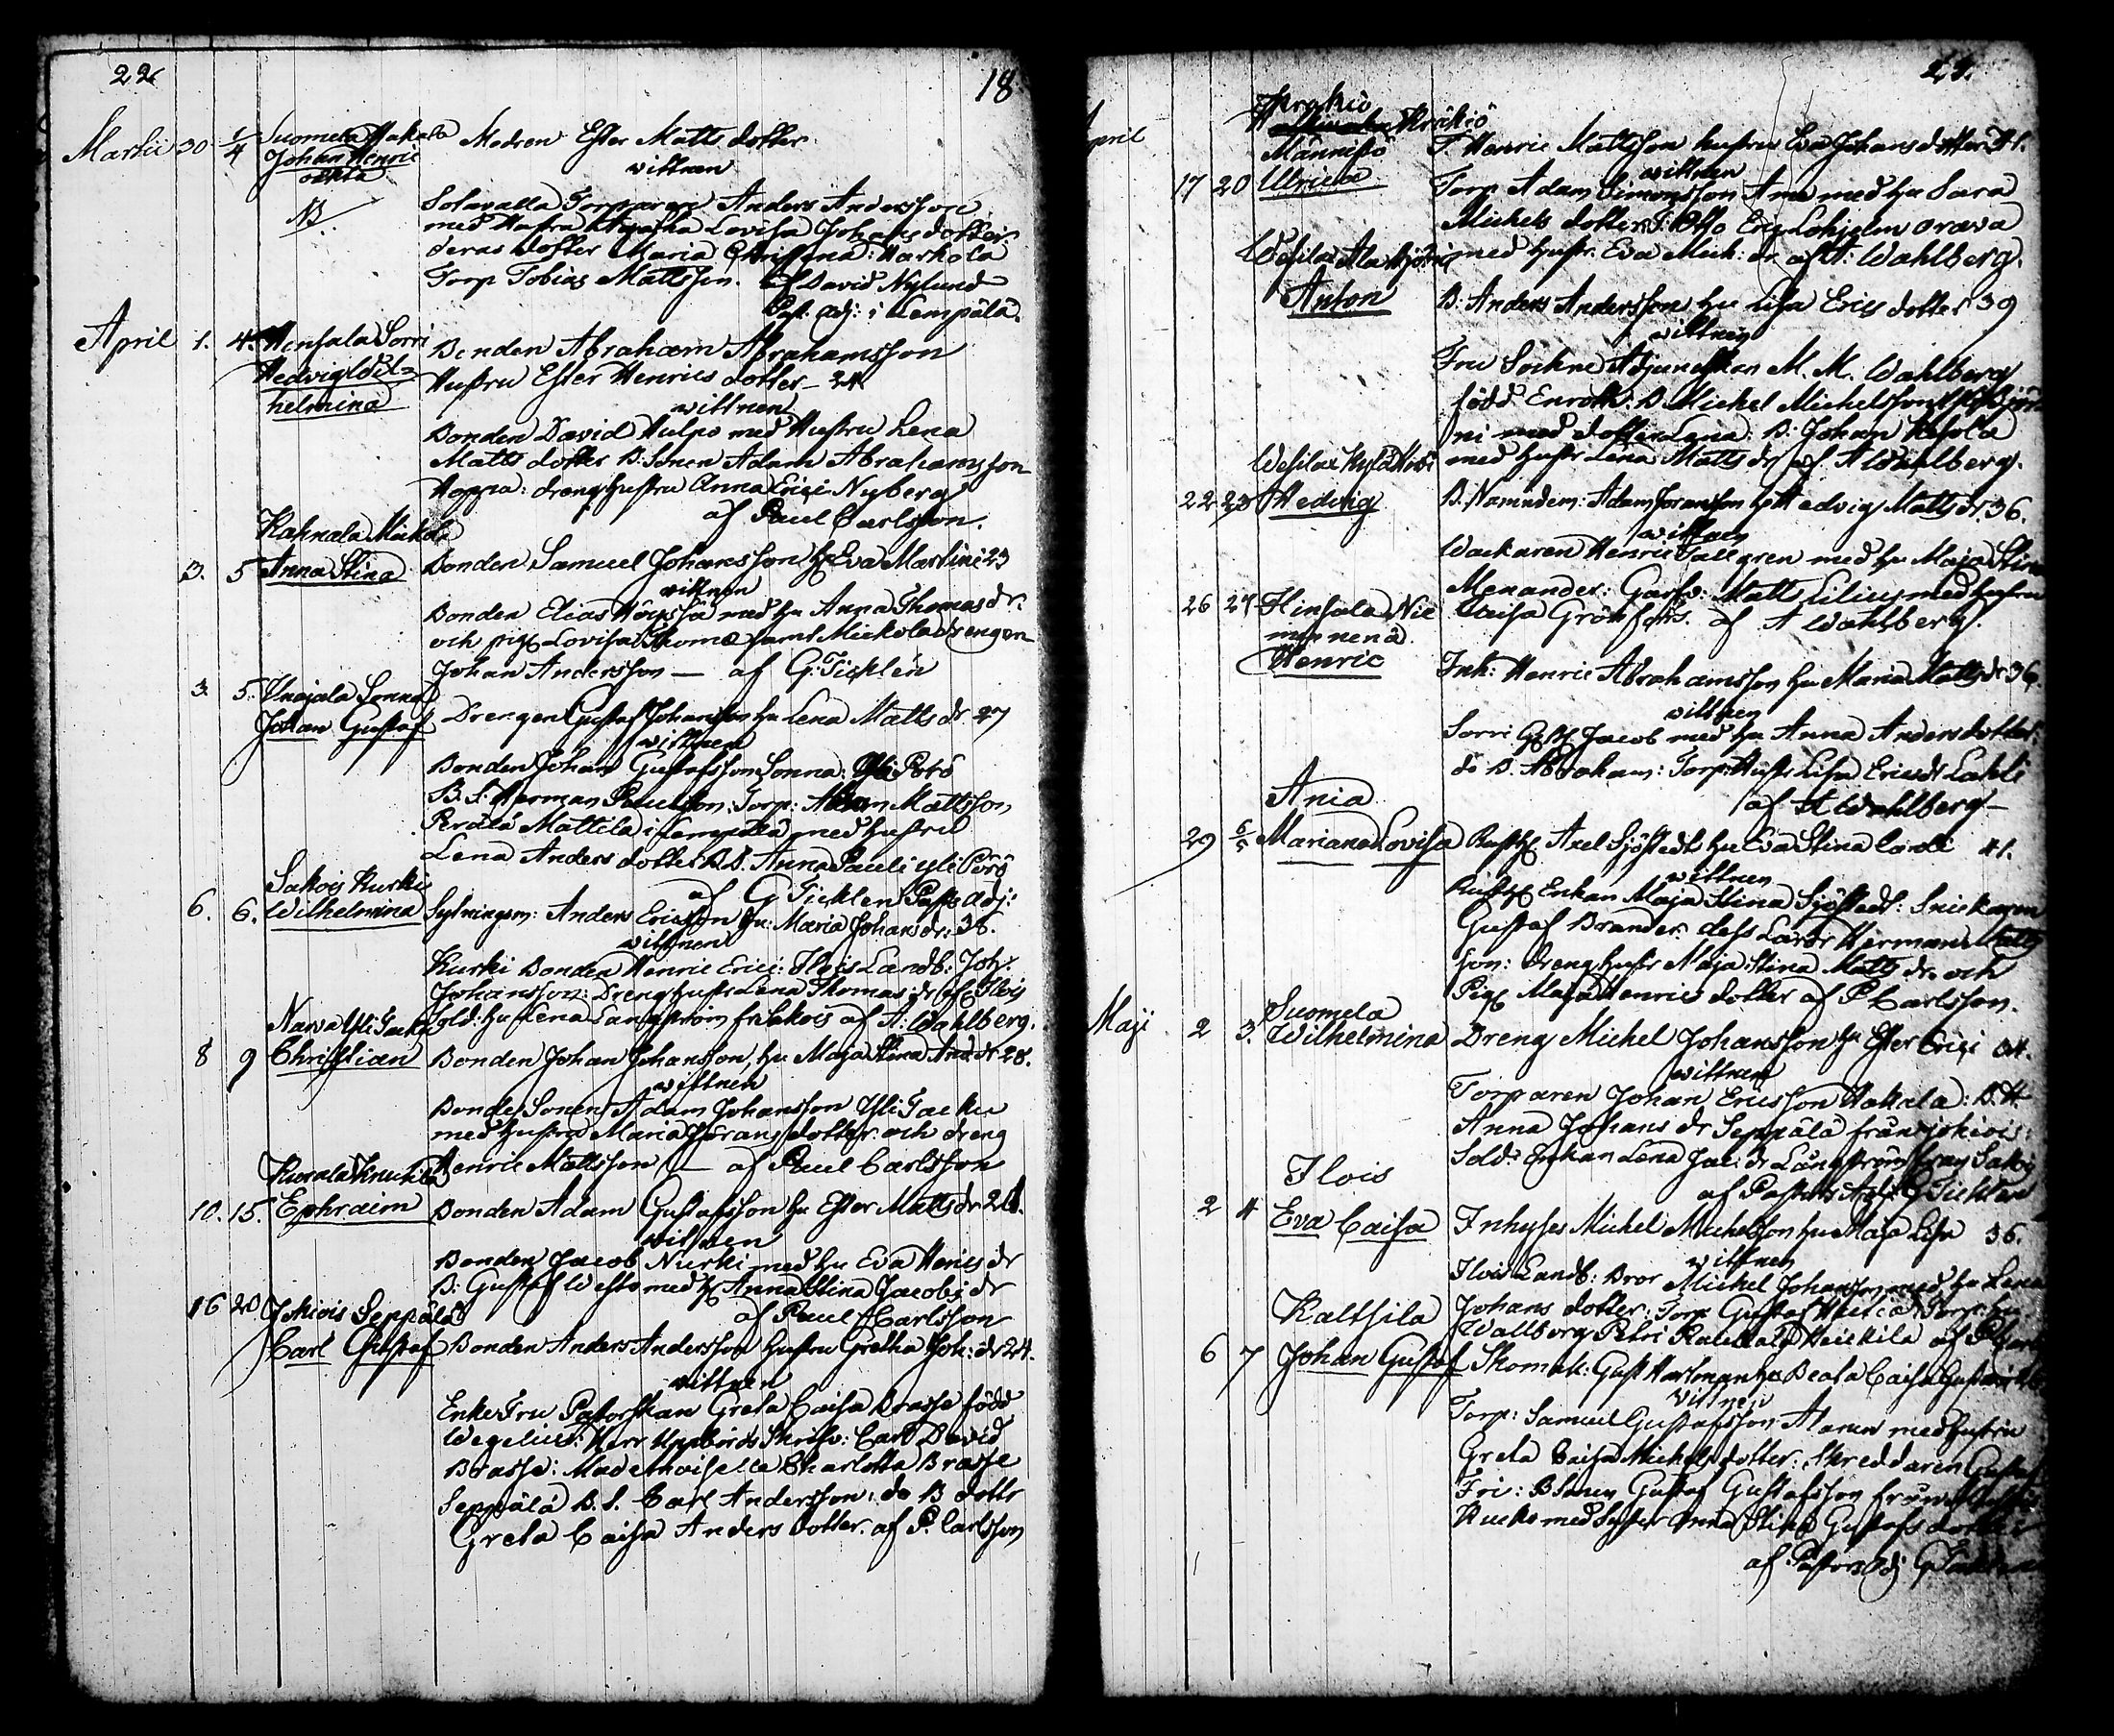 22 18
Martii 30 1/4 Suomela Hakala Modren Ester Matts dotter
Johan Henric wittnen
oäkta
NB Solavalla Torparen Anders Andersson
med Hustru Agatha Lovisa Johans dotter
deras dotter Maria Christina: Harkola
Torp Tobias Mattsson. af David Nylund
Past: adj: i Lempälä.
April 1. 4. Honsala Sorri Bonden Abraham Abrahamsson
Hedvig Wil= Hustru Ester Henrics dotter – 24
helmina wittnen
Bonden David Hulpo med Hustru Lena
Matts dotter B: Sonen Adam Abrahamsson
Hoppa: dreng hustru Anna Erici Nyberg
af Paul Carlsson.
Kahnala Mickola
3. 5 Anna Stina Bonden Samuel Johansson H Eva Martini 23
wittnen
Bonden Elias med hu Anna Thomas dr.
och pig Lovisa Thomæ samt Mickola drengen
Johan Andersson — af G: Ticklén
3. 5. Sonna
Johan Gustaf Drengen Gustaf Johansson hu Lena Matts dr 27
wittnen
Bonden Johan Gustafsson Sonna: Yli Pörö
B. S: Herman Paulsson: Torp: Adam Mattsson
Perälä Mattila i Lempälä med hustru
Lena Anders dotter B.D. Anna Pauli Yli Pörö
Sakois Kurki af G Ticklen Past: adj:
6. 6. Wilhelmina Sytningsm: Anders Ericsson hu: Maria Johans dr: 36.
wittnen
Kurki Bonden Henric Erici: Ilois Landb: Joh:
Johansson: Dreng hustr Lena Thomas dr af: Ilois
Narva Yli Gacku Sold: hu Lena Langström fr Sakois af A: Wahlberg.
8 9 Christian Bonden Johan Johansson, hu Maja Stina And: dr 28.
wittnen
Bonde Sonen Adam Johansson Yli Gacku
med hustru Maria Jörans dotter och dreng
Kurala Knuutila Henric Mattsson — af Paul Carlsson
10. 15. Ephraim Bonden Adam Gustafsson hu Ester Matts dr 21.
wittnen
Bonden Jacob Nurki med hu Eva Henrics dr
B: Gustaf Westo med H Anna Stina Jacobs dr
16 20 Jokiois Seppälä af Paul Carlsson
Carl Gustaf Bonden Anders Andersson hustru Gretha Joh: dr 24.
wittnen
Enke Fru Pastorskan Greta Caisa Brasse född
Wegelius: Herr Uppbörds Skrifv: Carl David
Brasse: Mademoiselle Charlotta Brasse
Seppälä B. S. Carl Andersson: do B dottr
Greta Caisa Anders dotter. af P. Carlsson
April
Männistö T Henric Mattsson hustru Eva Johans dotter 41.
17 20 Ulrica wittnen
Torp Adam Simonsson med hu Sara
Michels dotter: Otto Eric Lohjelm Orava
Wesilax Ala med hustr: Eva Mich: dr af A: Wahlberg.
Anton B: Anders Andersson hu Lisa Erics dotter 39
wittnen
Fru Sockne Adjunctskan M. M. Wahlberg
född Enroth: B Michel Michelsson
ni med dotter Lena: B: Johan
Wesilax med hustr Lena Matts dr af A Wahlberg.
22 23 Hedvig B. Nämndem: Adam Joransson h Hedvig Matts dr: 36.
wittnen
Wackaren Henric Tallgren med hu Maja Stina
Menander: Matts Lilius med hustru
26 27 Hinsala Nie Caisa Grönfors. af A Wahlberg.
mennenä
Henric Inh: Henric Abrahamsson hu Maria Matts dr 36.
wittnen
Sorri Jacob med hu Anna Anders dotter:
do B. Abraham: Torp: Hustr Lisa Erics dr Lahti
Ania af A Wahlberg –
29 6/5 Mariana Lovisa Axel Sjöstedt hu Eva Stina 41.
wittnen
Enkan Maja Stina Sjöstedt: Snickaren
Gustaf Brander. dess Lärdr Herman Matts
son: dreng hustr Maja Stina Matts dr och
Pig Maja Henrics dotter af P Carlsson.
Maji 2 3. Suomela
Wilhelmina Dreng Michel Johansson hu Ester Erici 34.
wittnen
Torparen Johan Ericsson Hakala: B. H.
Anna Johans dr Seppälä från Jokiois:
Sold: Enkan Lena Jac: dr Långström från Sakois
Ilois af Pastors Adj: G Ticklen
2 4 Eva Caisa Inhyses Michel Michelsson hu Maja Lisa 36.
wittnen
Ilois Landb: Bror Michel Johansson med hu Lena
Kaltsila Johans dotter: Torp Gustaf Torp: hu
Wallborg Petri Heickilä af P Carl
6 7 Johan Gustaf Skomak: Gust Hartman hu Beata Caisa
wittnen
Torp: Samuel Gustafsson Alanen med hustru
Greta Caisa Michels dotter: Skreddaren Gustaf
Fri: B Sonen Gustaf Gustafsson från
Kucko med Syster Anna Stina Gustafs dotter
af Pastors Adj G Ticklen